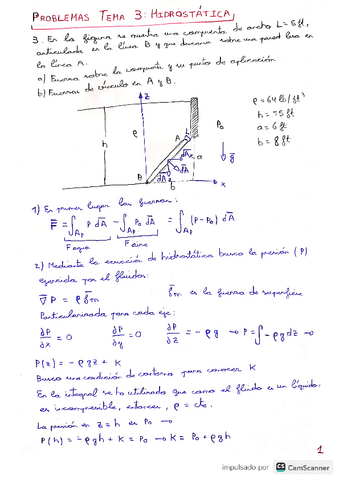 PROBLEMAS TEMA 3: HIDROSTÁTICA,
3. En la figura se muestra una compuerta de ancho L=5ft,
articulada en la línea B y que descansa sobre una pared lisa en
la línea A.
a) Fuerza sobre la compuerta y su punto de aplicación
b) Fuerzas de vínculo en A y B.
z
ρ = 64 lb/ft³
h = 15 ft
a = 6 ft
b = 8 ft
ρ
P₀
h
A
L
dAx
a
dA
dAz
g
B
b
x
1) En primer lugar las fuerzas:
F = ∫Ap P dA - ∫Ap P₀ dA = ∫Ap (P-P₀) dA
F agua
F aire
2) Mediante la ecuación de hidrostática busco la presión (P)
ejercida por el fluido:
∇P = ρ fm
fm es la fuerza de superficie
Particularizada para cada eje:
∂P/∂x = 0 ∂P/∂y = 0 ∂P/∂z = -ρg → P = ∫-ρg dz →
P(z) = -ρgz + K
Busco una condición de contorno para conocer K
En la integral se ha utilizado que como el fluido es un líquido,
es incompresible, entonces, ρ = cte.
La presión en z = h es P₀ →
P(h) = -ρgh + K = P₀ → K = P₀ + ρgh
1
impulsado por CS CamScanner